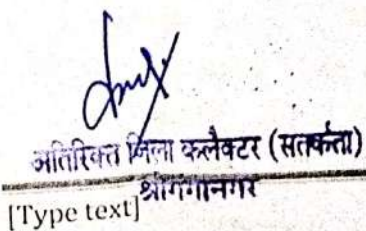 अतिरिक्त जिला कलैक्टर (सतर्कता)
श्रीगंगानगर
[Type text]